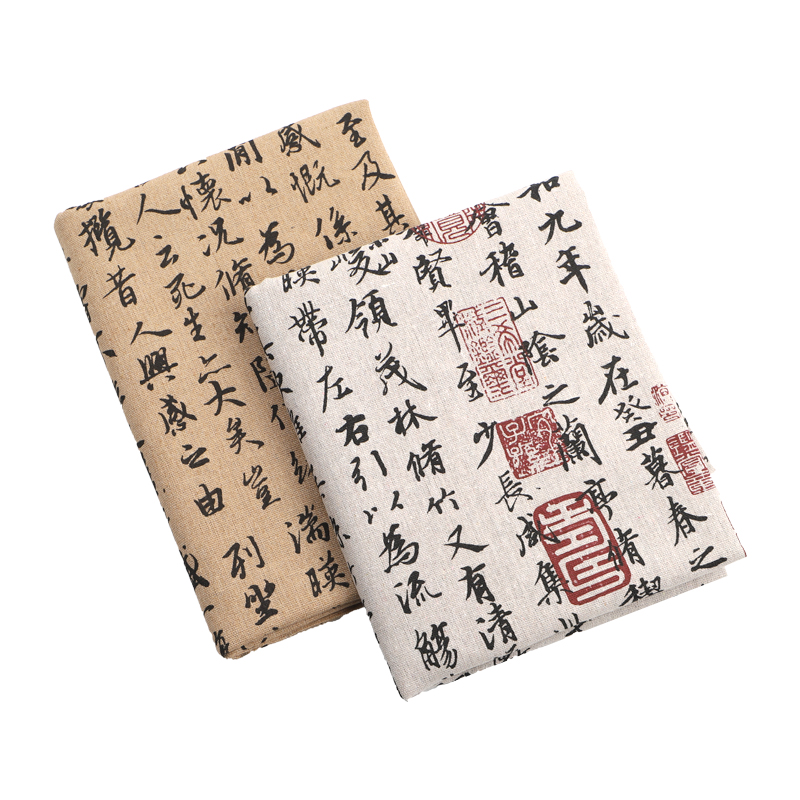 和九年歲在癸丑暮春之
會稽山陰之蘭亭脩禊
賢畢至少長咸集此
峻領茂林脩竹又有清
映帶左右引以為流觴
至及其
感慨係
閒以為
懷況脩短
人云死生亦大矣豈
攬昔人興感之由
湍映
列坐